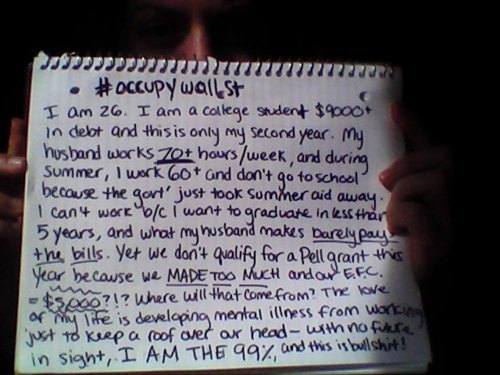 • #occupywallst
I am 26. I am a college student $9000+
in debt and this is only my second year. My
husband works 70+ hours/week, and during
summer, I work 60+ and don't go to school
because the govt' just took summer aid away.
I can't work b/c I want to graduate in less than
5 years, and what my husband makes barely pays
the bills. Yet we don't qualify for a Pell grant this
year because we MADE TOO MUCH and our E.F.C.
= $5,000?!? Where will that come from? The love
of my life is developing mental illness from working
just to keep a roof over our head - with no future
in sight, I AM THE 99%, and this is bullshit!